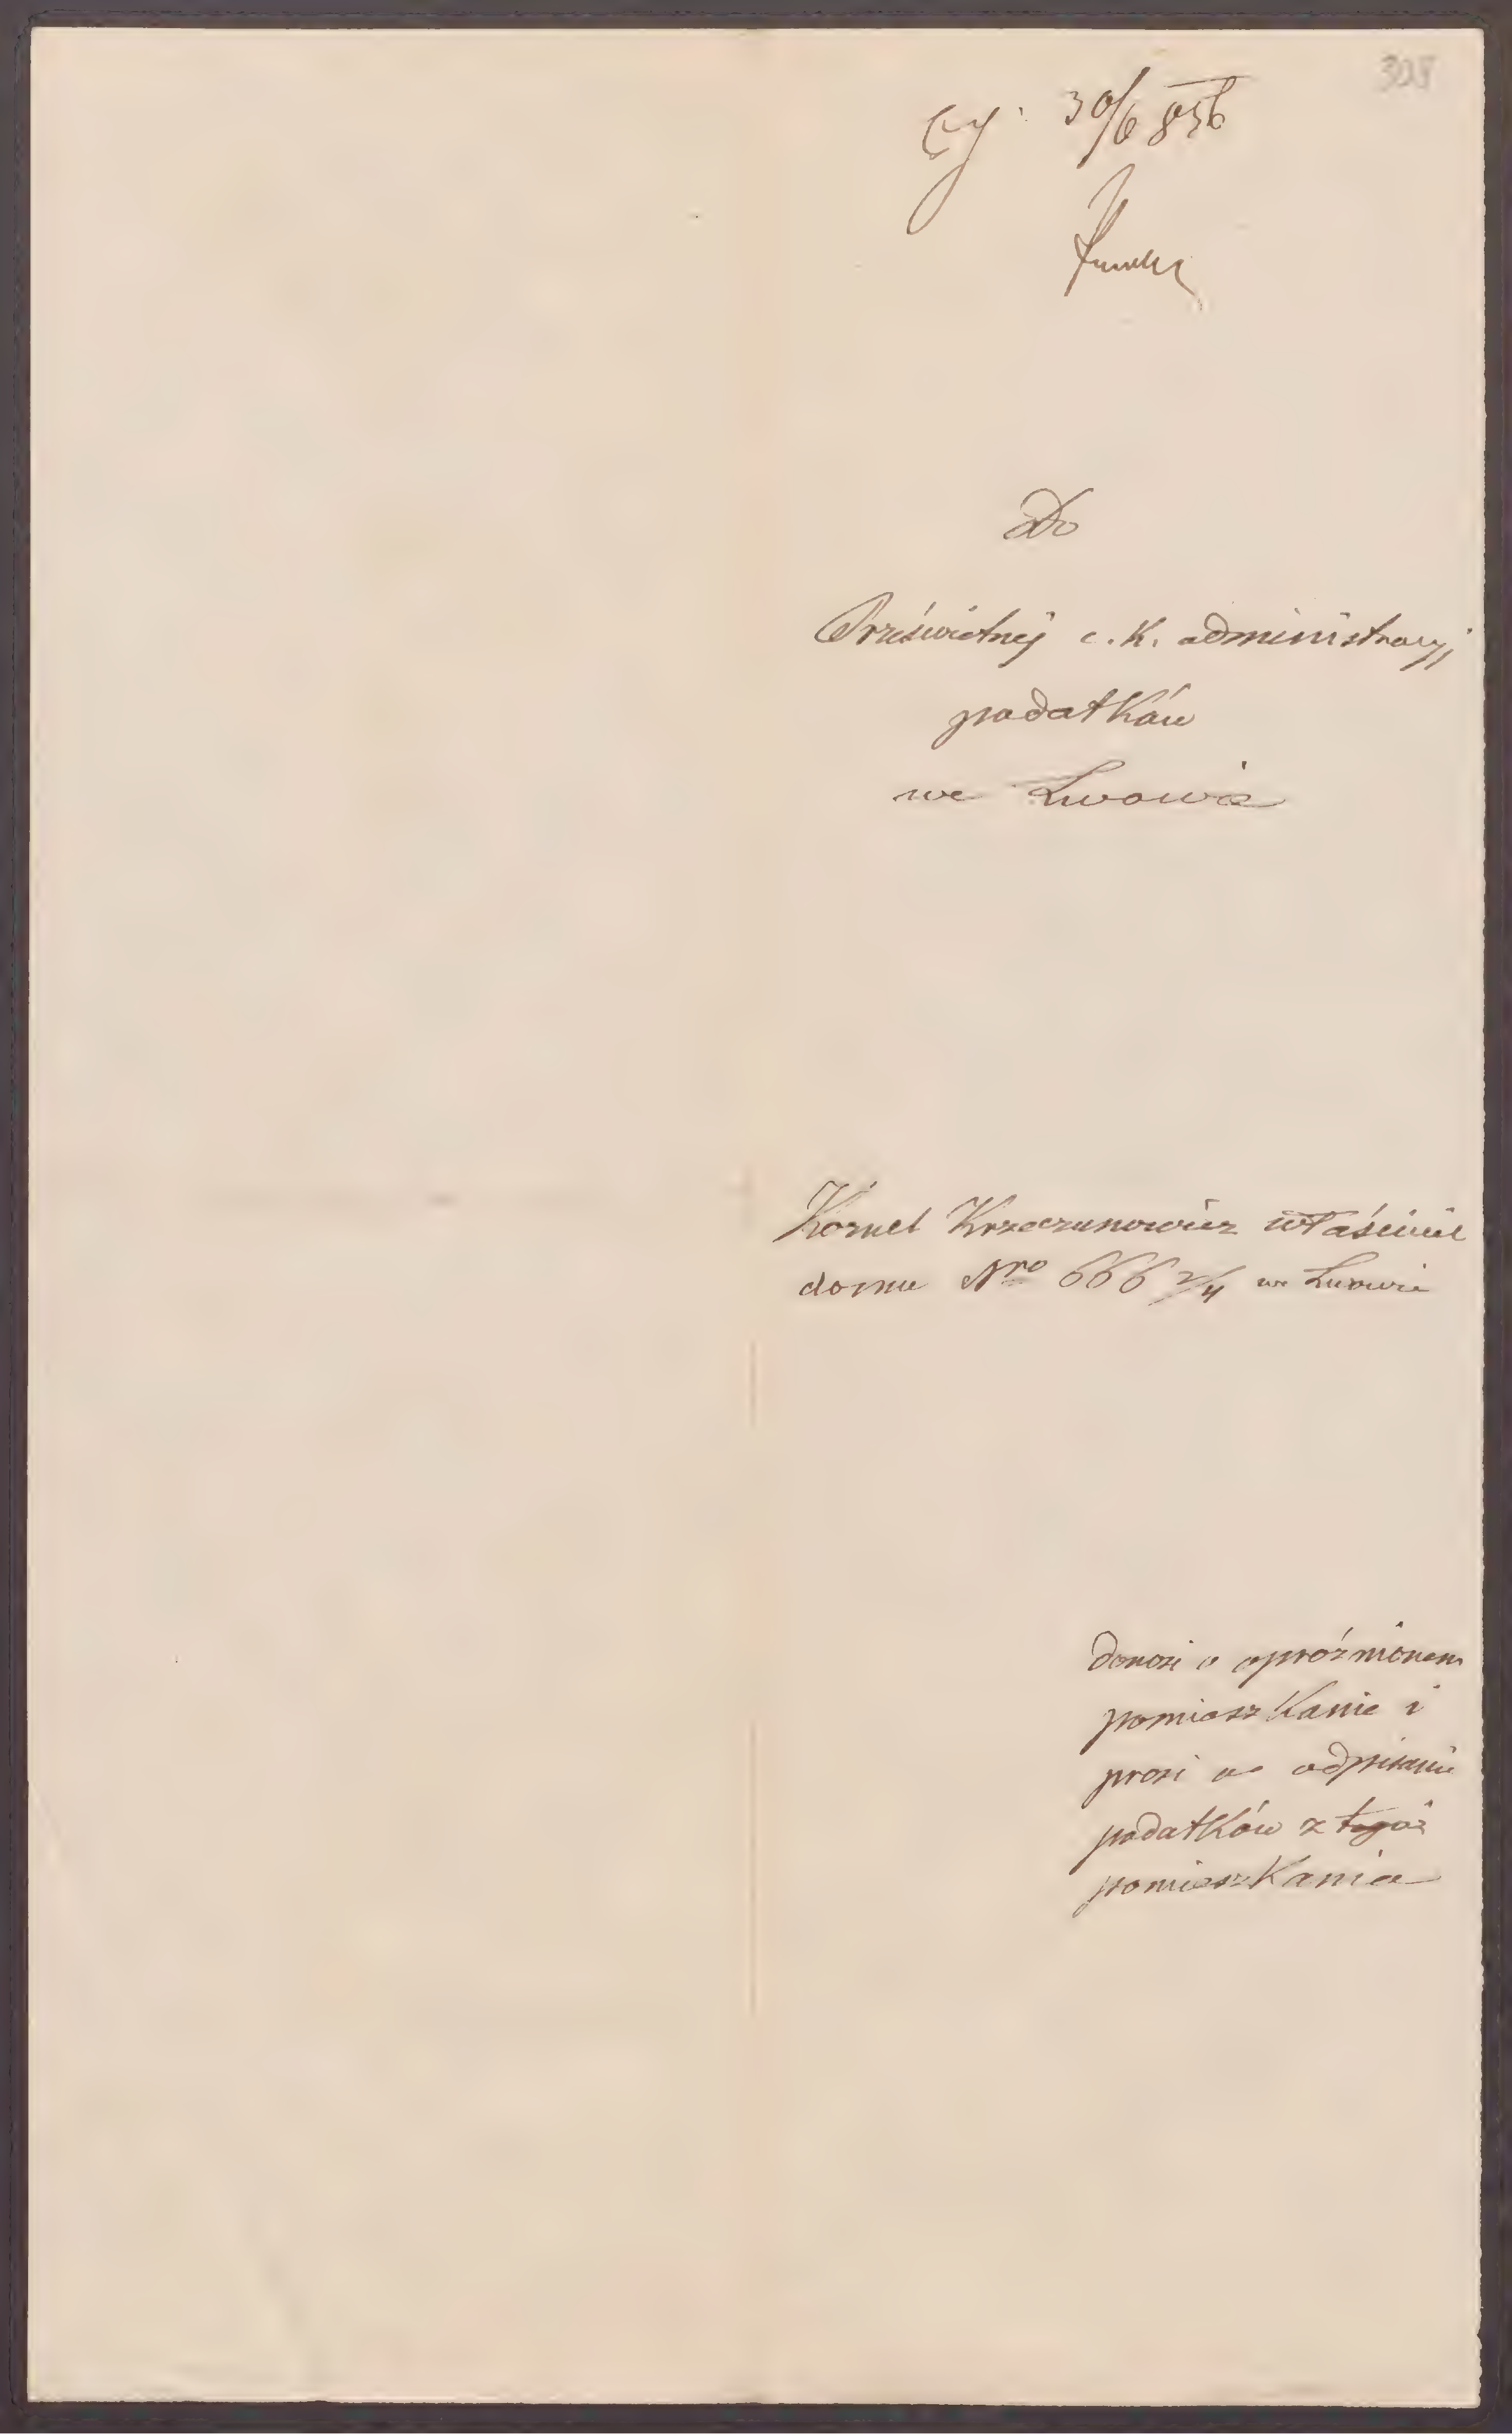 308
30/6 856
Do
Prześwietnej c. K. administracyj
podatków
we Lwowie
Kornel Krzeczunowicz właściciel
domu Nro 666 2/4 we Lwowie
donosi o opróżnionem
pomieszkanie i
prosi o odpisanie
podatków z tegoż
pomieszkania